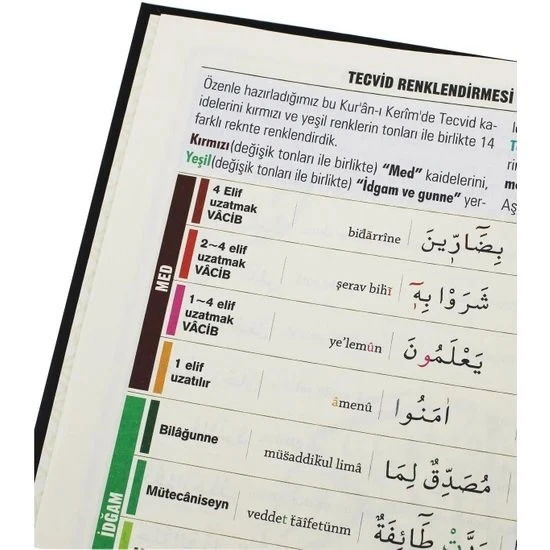 TECVİD RENKLENDİRMESİ
Özenle hazırladığımız bu Kur'ân-ı Kerîm'de Tecvid ka-
idelerini kırmızı ve yeşil renklerin tonları ile birlikte 14
farklı reknte renklendirdik.
Kırmızı(değişik tonları ile birlikte) "Med" kaidelerini,
Yeşil(değişik tonları ile birlikte) "İdgam ve gunne" yer-
MED
4 Elif
uzatmak
VÂCİB
bidârrîne
بِضَٓارّ۪ينَ
2~4 elif
uzatmak
VÂCİB
şerav bihî
شَرَوْا بِه۪ٓ
1~4 elif
uzatmak
VÂCİB
ye'lemûn
يَعْلَمُونَ
1 elif
uzatılır
âmenû
اٰمَنُوا
İDĞAM
Bilâğunne
müsaddikul limâ
مُصَدِّقٌ لِمَا
Mütecâniseyn
veddet tâifetünm
طَٓائِفَةٌ